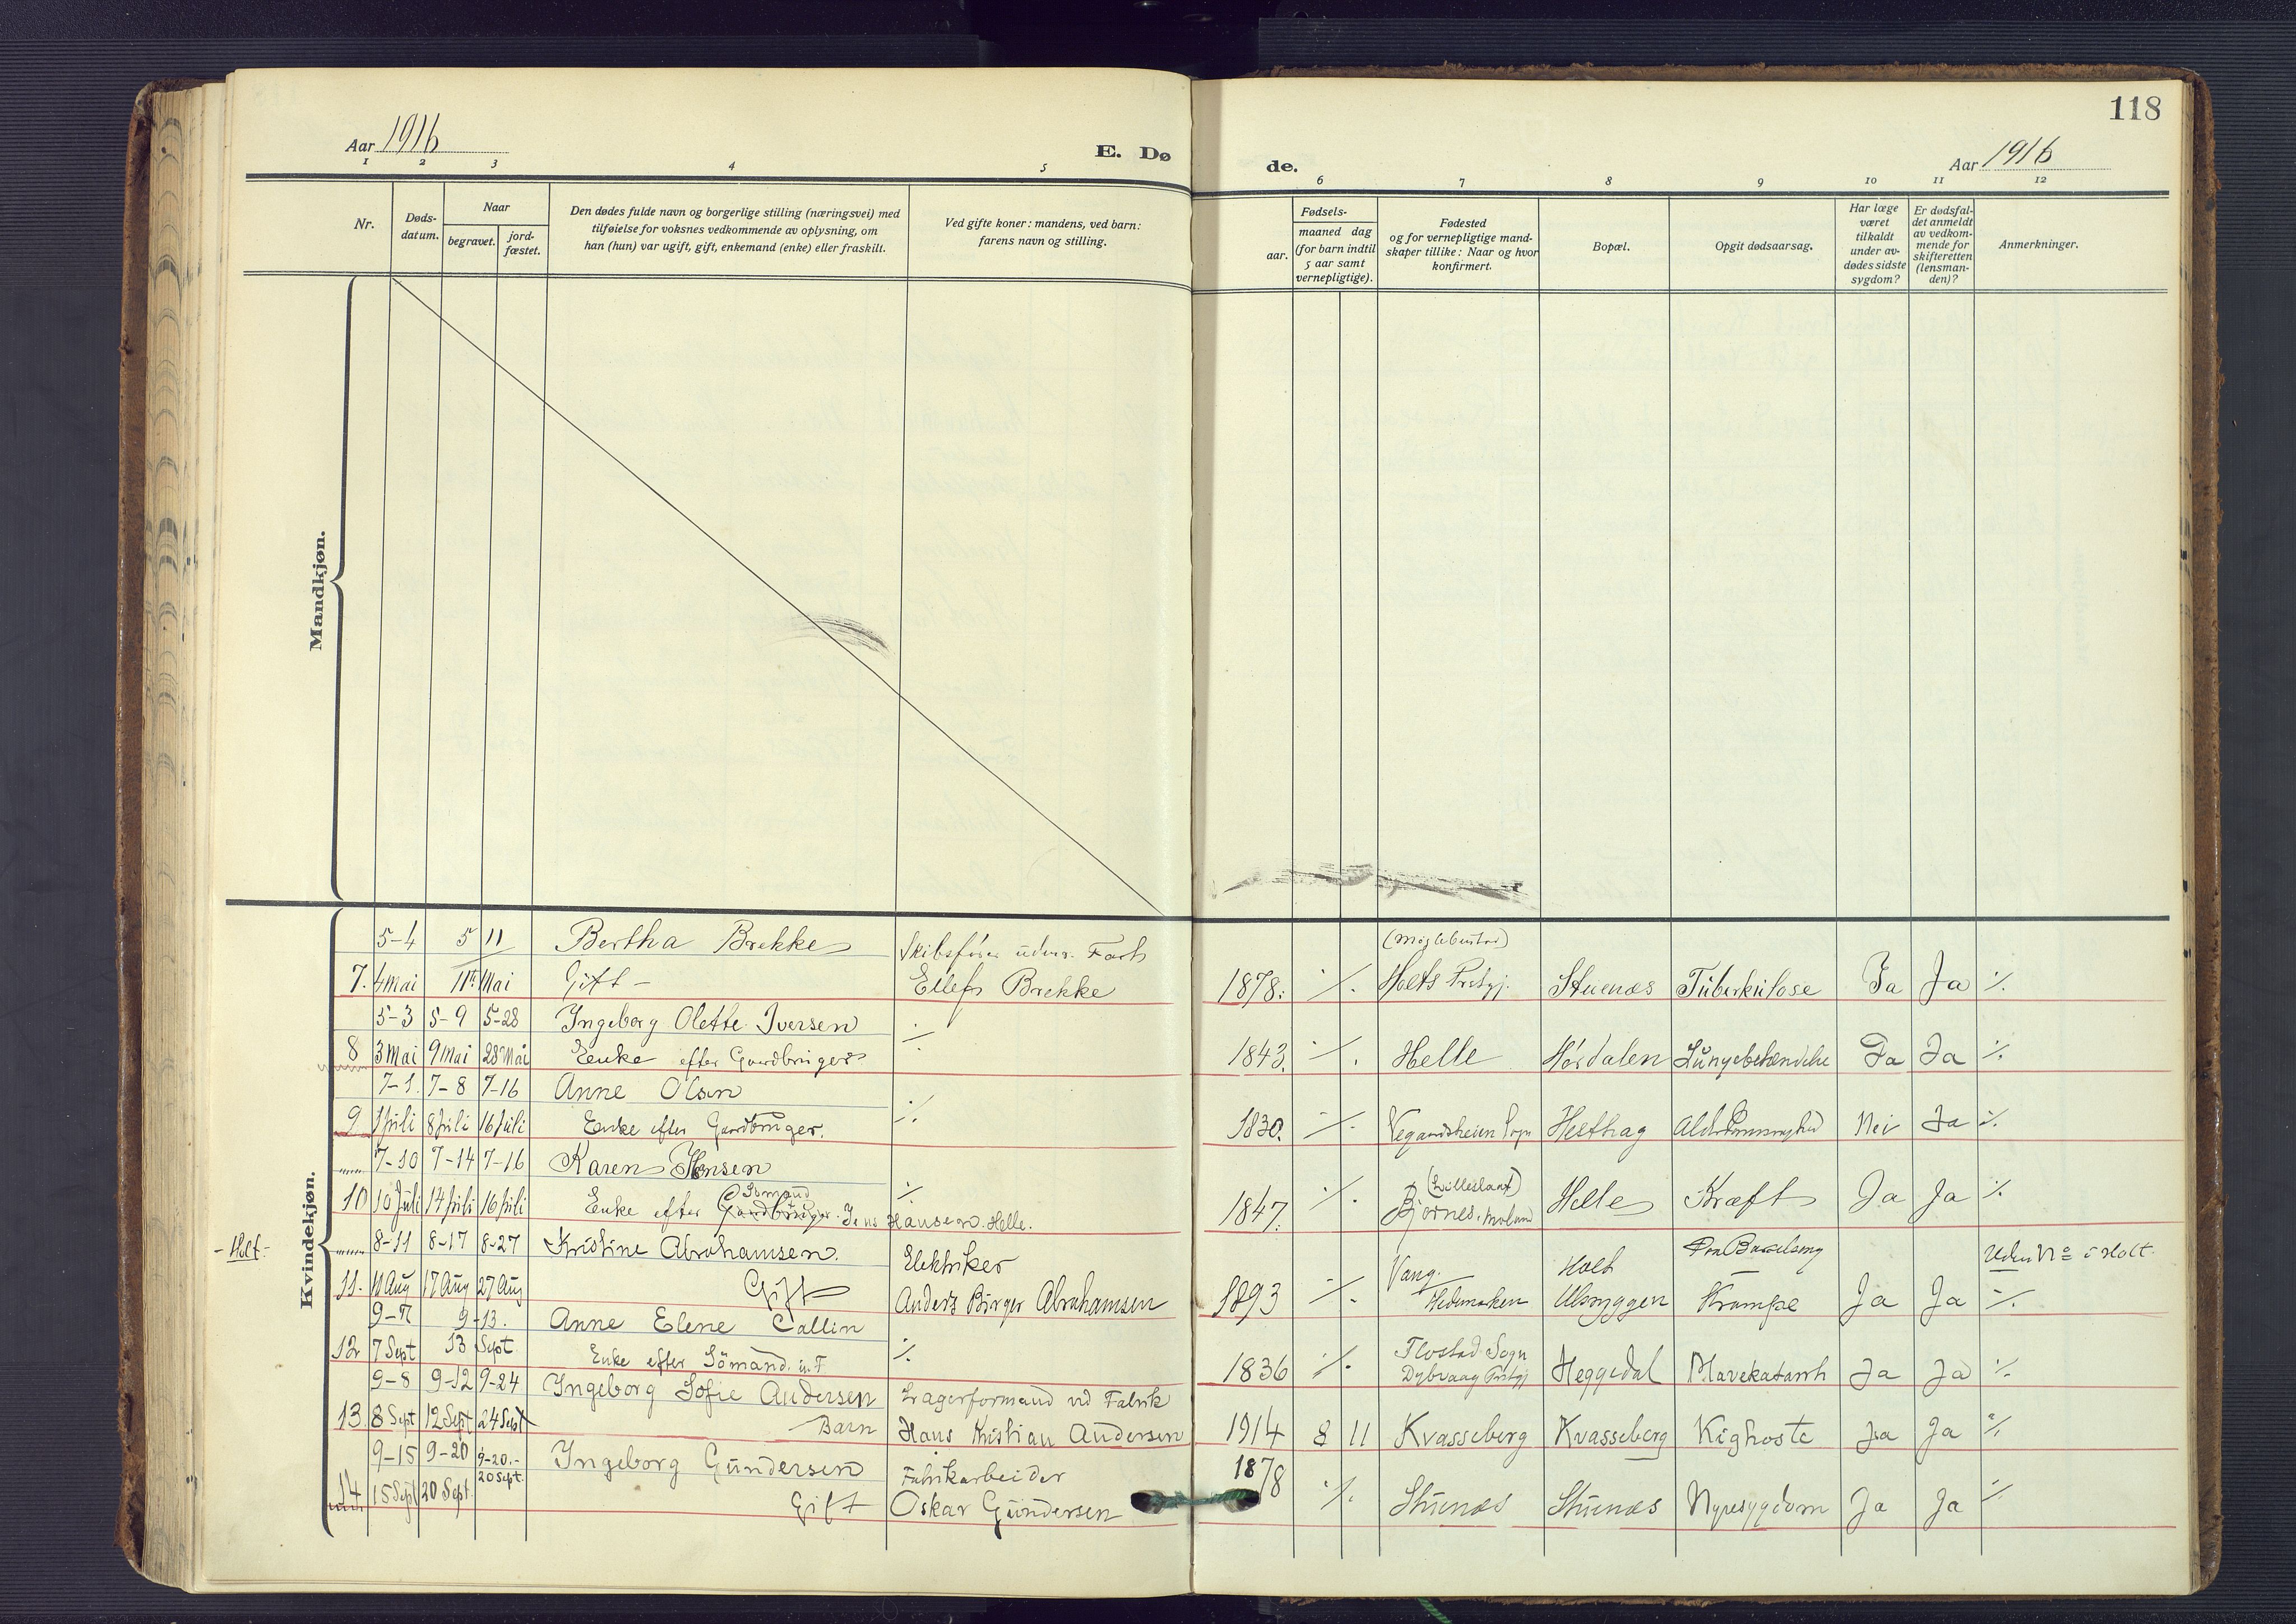 118
Aar 1916
E. Dø
de.
Aar 1916
1 2 3 4 5 6 7 8 9 10 11 12
Nr.
Døds-
datum.
Naar
begravet.
jord-
fæstet.
Den dødes fulde navn og borgerlige stilling (næringsvei) med
tilføielse for voksnes vedkommende av oplysning, om
han (hun) var ugift, gift, enkemand (enke) eller fraskilt.
Ved gifte koner: mandens, ved barn:
farens navn og stilling.
Fødsels-
aar.
maaned dag
(for barn indtil
5 aar samt
vernepligtige).
Fødested
og for vernepligtige mand-
skaper tillike: Naar og hvor
konfirmert.
Bopæl.
Opgit dødsaarsag.
Har læge
været
tilkaldt
under av-
dødes sidste
sygdom?
Er dødsfal-
det anmeldt
av vedkom-
mende for
skifteretten
(lensman-
den)?
Anmerkninger.
Mandkjøn.
Kvindekjøn.
5-4 5 11 Bertha Brekke Skibsfører Fart
7. 4 Mai 11te Mai Gift - Ellef Brekke 1878. ./. Holts Prstgj. Stuenæs Tuberkulose Ja Ja ./.
5-3 5-9 5-28 Ingeborg Olette Iversen ./.
8 3 Mai 9 Mai 28 Mai Enke efter Gaardbruger 1843. ./. Helle Hørdalen Ja Ja ./.
7-1. 7-8 7-16 Anne Olsen ./.
9 1 Juli 8 Juli 16 Juli Enke efter Gaardbruger. 1830. ./. Vegaardsheien Sogn Hesthag Nei Ja ./.
7-10 7-14 7-16 Karen Jensen ./.
10 10 Juli 14 Juli 16 Juli Enke efter Gaardbruger Sømand Jens Hansen. Helle. 1847. ./. (Lillesland) Helle Kræft Ja Ja ./.
- Holt - 8-11 8-17 8-27 Kristine Abrahamsen. Elektriker Uden No i Holt.
11. 11 Aug 17 Aug 27 Aug Gift Anders Birger Abrahamsen 1893 ./. Vang. Hedemarken Holt Krampe Ja Ja ./.
9-7 9-13. Anne Elene Callin ./.
12 7 Sept 13 Sept Enke efter Sömand. u. F 1836 ./. Flostad Sogn Dybvaag Prstgj Heggedal Mavekatarrh Ja Ja ./.
9-8 9-12 9-24 Ingeborg Sofie Andersen Lagerformand ved Fabrik
13. 8 Sept 12 Sept 24 Sept Barn Hans Kristian Andersen 1914 8 11 Kvasseberg Kvasseberg Kighoste Ja Ja ./.
9-15 9-20 9-20.- Ingeborg Gundersen Fabrikarbeider
14 15 Sept 20 Sept 20 Sept. Gift Oskar Gundersen 1878 ./. Stuenæs Stuenæs Nyresygdom Ja Ja ./.